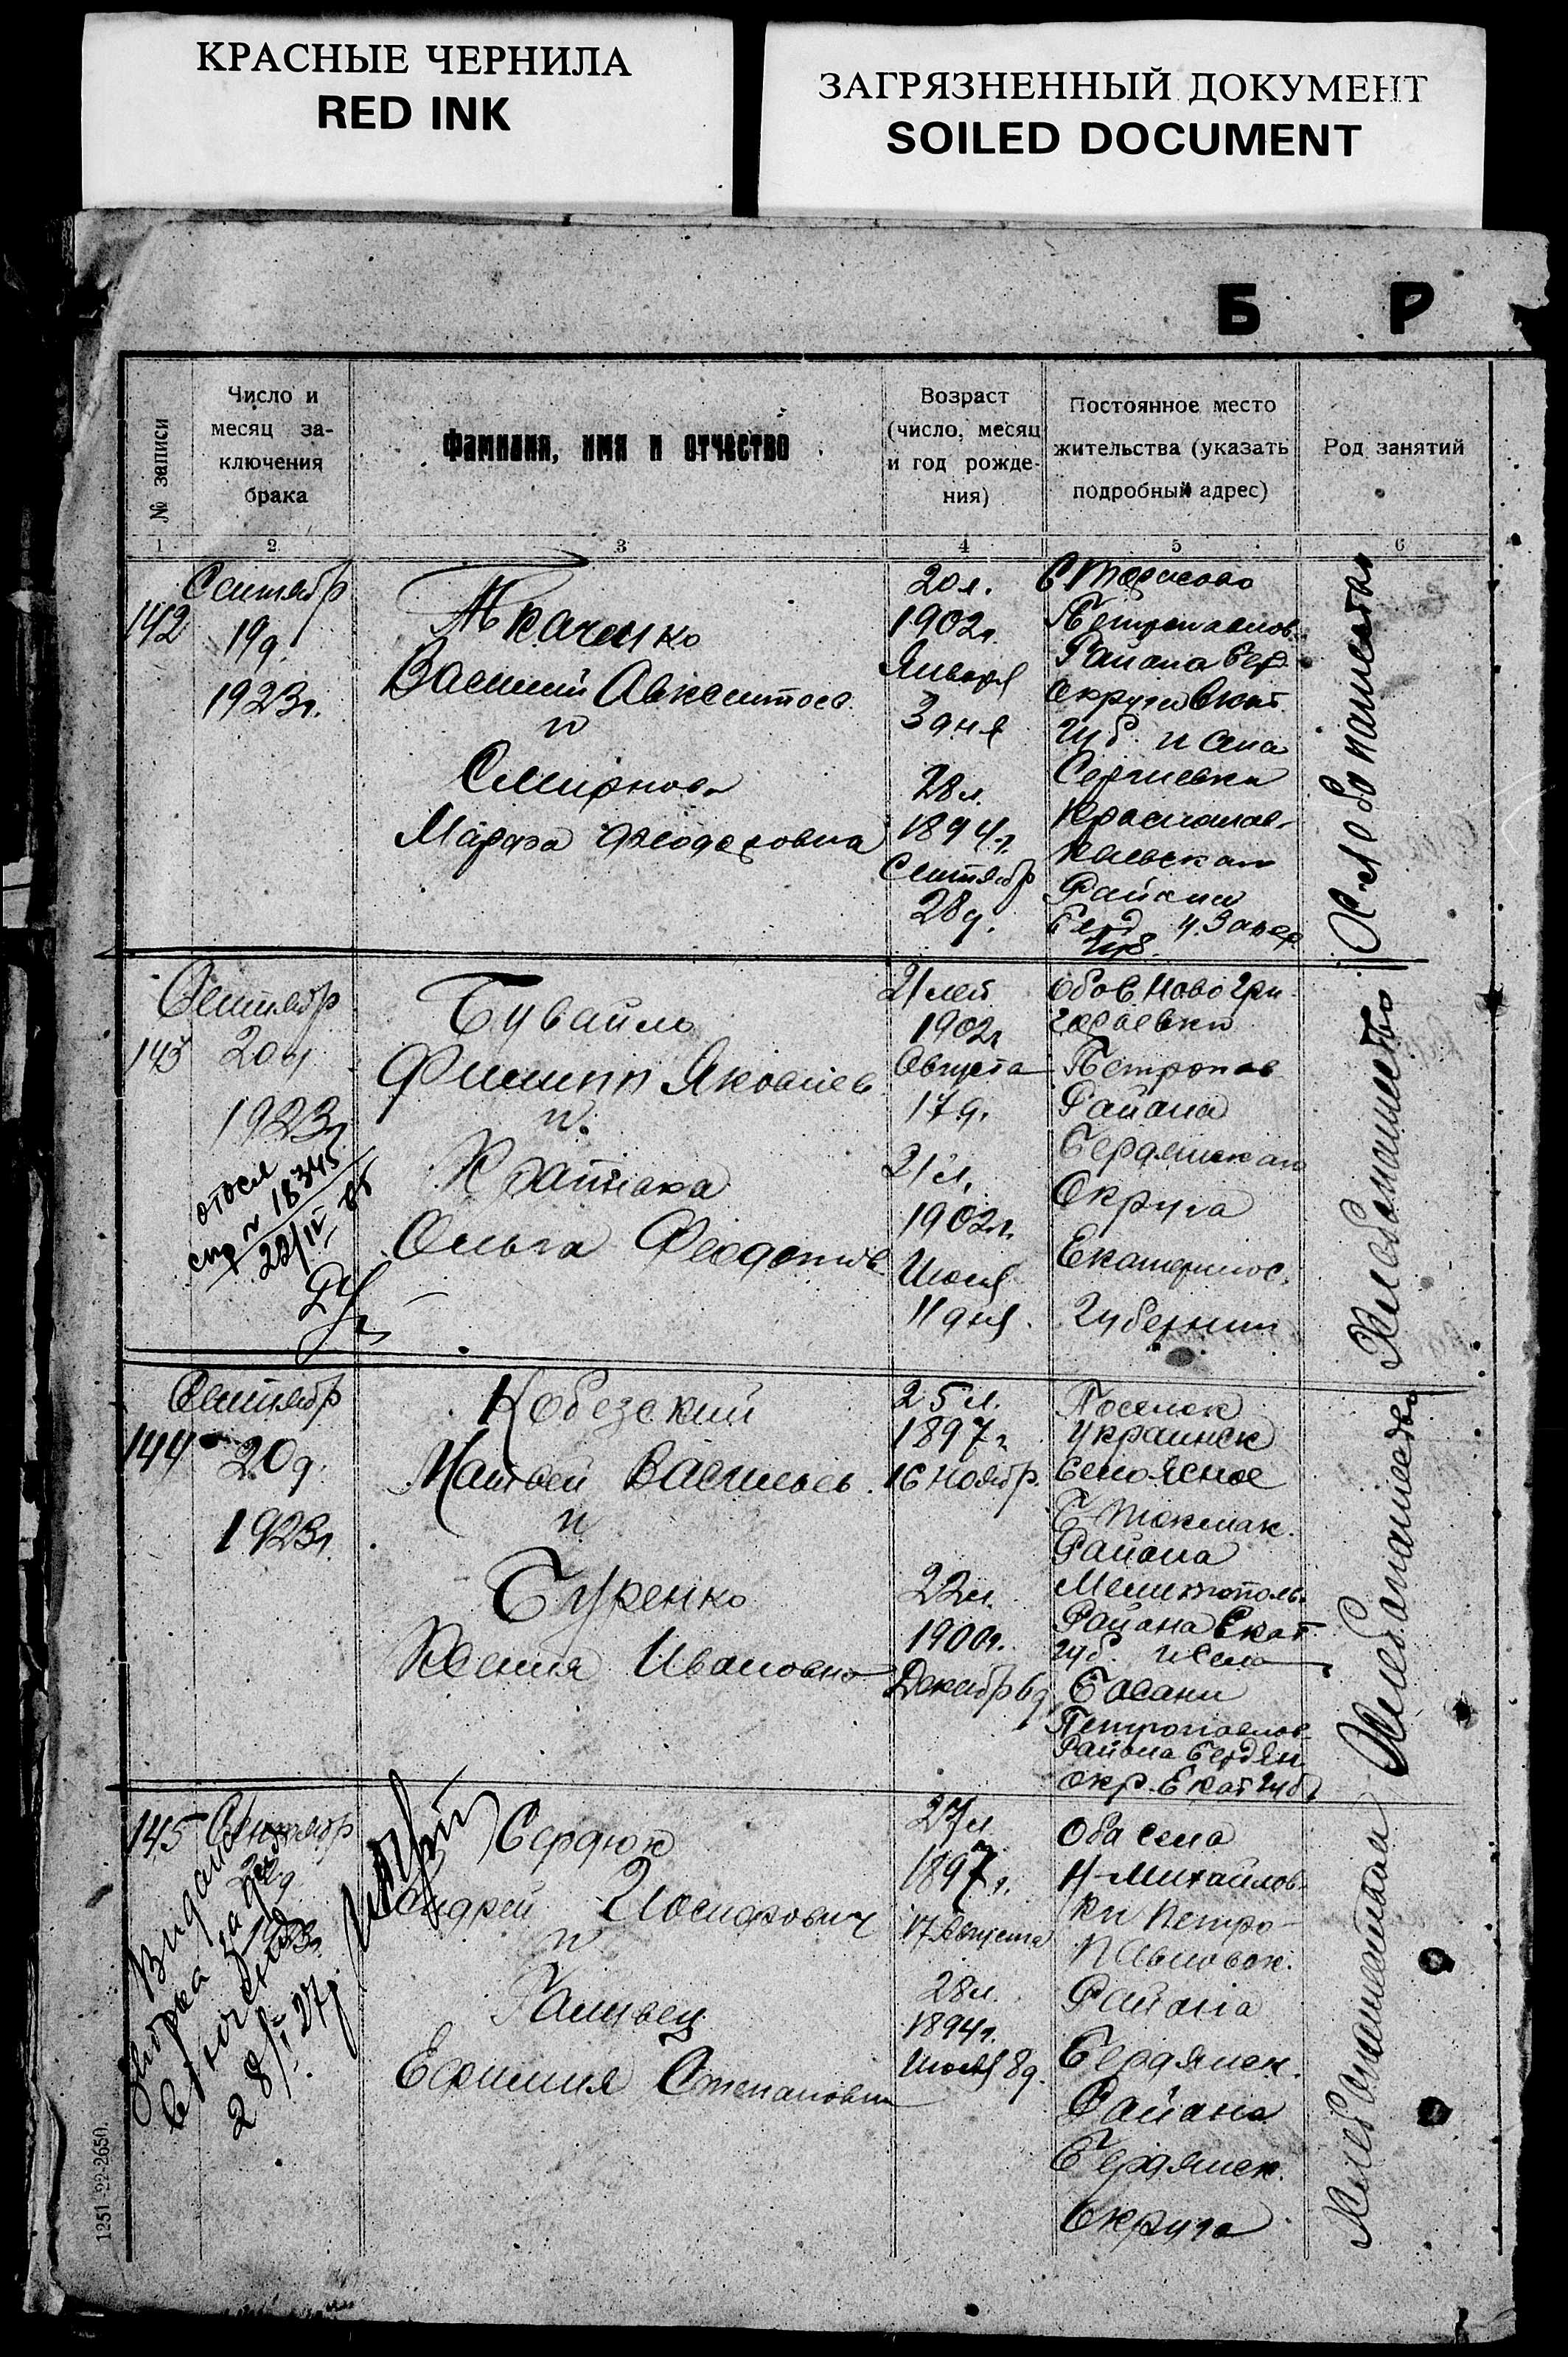 КРАСНЫЕ ЧЕРНИЛА
RED INK
ЗАГРЯЗНЕННЫЙ ДОКУМЕНТ
SOILED DOCUMENT
Б Р
№ записи
Число и
месяц за-
ключения
брака
Фамилия, имя и отчество
Возраст
(число, месяц
и год рожде-
ния)
Постоянное место
жительства (указать
подробный адрес)
Род занятий
1 2 3 4 5 6
142
Сентябр
19д.
1923г.
Ткаченко
Василий Авксентьев
и
Смирнова
Марфа Феодоровна
20л.
1902г.
Января
3 дня
28л.
1894г.
Сентябр
28д.
Петропавлов.
Района Берд.
Округа Екат.
Губ. и села
Сергиевки
Района
Губ.
Хлебопашество
143
Сентябр
20д
1923г.
18345
Бувайло
Филипп Яковлев
и
Ольга Федотов
21 лет
1902г
Августа
17д.
21л.
1902г.
Июля
11 дня.
Оба С. Ново Гри-
горьевки
Петропав
Района
Бердянскаго
Округа
Екатеринос.
Губернии
Хлебопашество
144
Сентябр
20д.
1923г.
Кобезский
Матвей Васильев.
и
Буренко
Ксения Ивановна
25л.
1897г
16 Ноябр.
22л.
1900г.
Декабр 6д
Поселок
Украинск
Б Токмак.
Района
Мелитополь.
Района Екат
губ. и Села
Басани
Петропавлов
Района Бердян
Окр. Екат губ
Хлебопашество
145
Сентябр
Видано
28/I 27г.
Сердюк
Андрей Иосифович
и
Ефимия Степановна
27л
1897г.
17 Августа
28л.
1894г.
Июля 8д.
Оба села
Н-Михайлов-
ки Петро-
Павловск.
Района
Бердянск.
Района
Бердянск.
Округа
Хлебопашество
1251-22-2650.